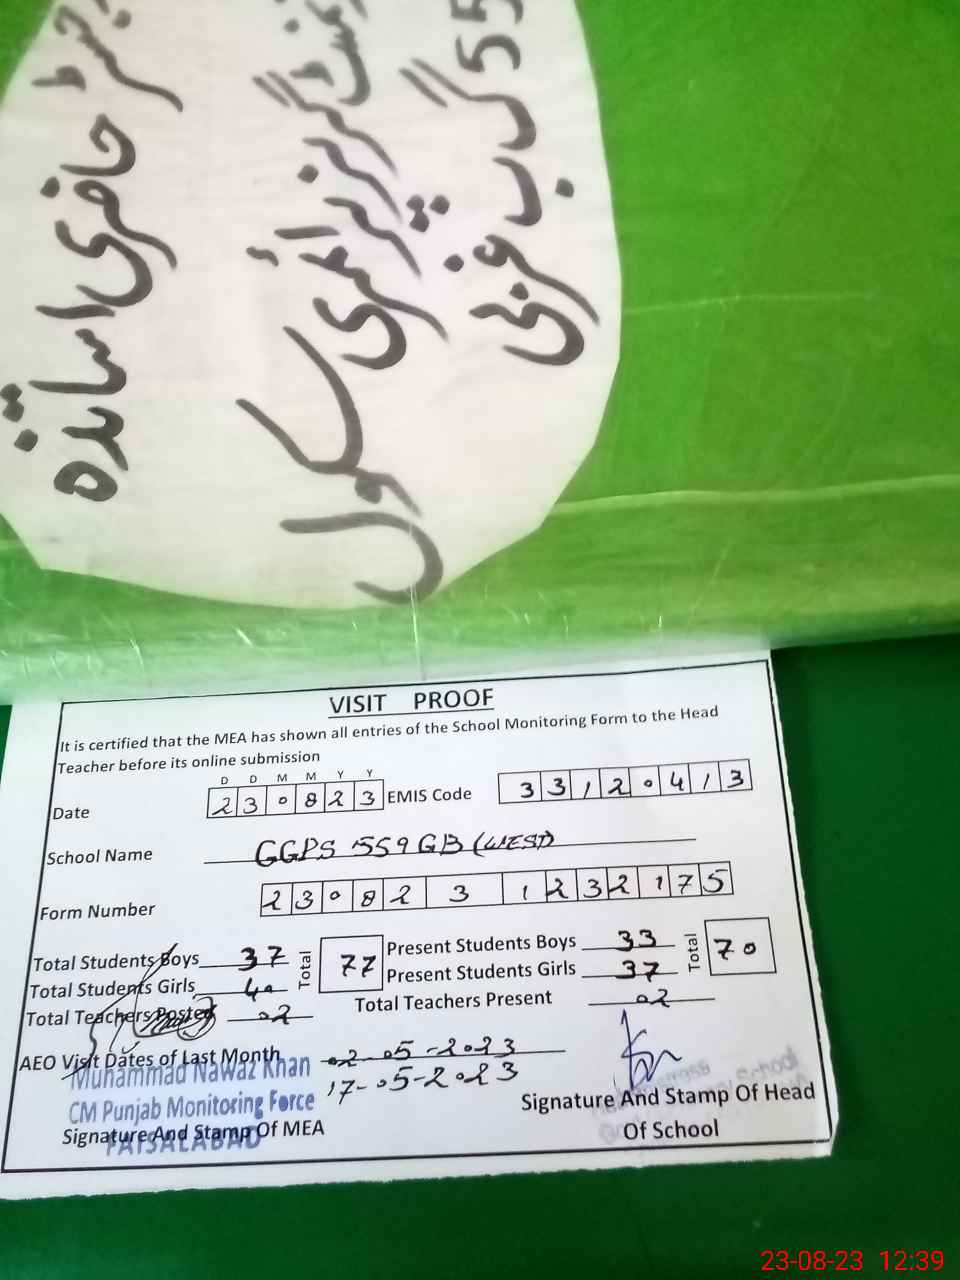 رجسٹر حاضری اساتذہ
گرلز پرائمری سکول
گ ب غربی
VISIT PROOF
It is certified that the MEA has shown all entries of the School Monitoring Form to the Head
Teacher before its online submission
D D M M Y Y
Date 23 08 23 EMIS Code 33120413
School Name GGPS 559 GB (WEST)
Form Number 2308231232175
Total Students Boys 37 Total 77 Present Students Boys 33 Total 70
Total Students Girls 40 Present Students Girls 37
Total Teachers Posted 02 Total Teachers Present 02
AEO Visit Dates of Last Month 02-05-2023
17-05-2023
Muhammad Nawaz Khan
CM Punjab Monitoring Force
FAISALABAD
Signature And Stamp Of MEA
Signature And Stamp Of Head
Of School
23-08-23 12:39